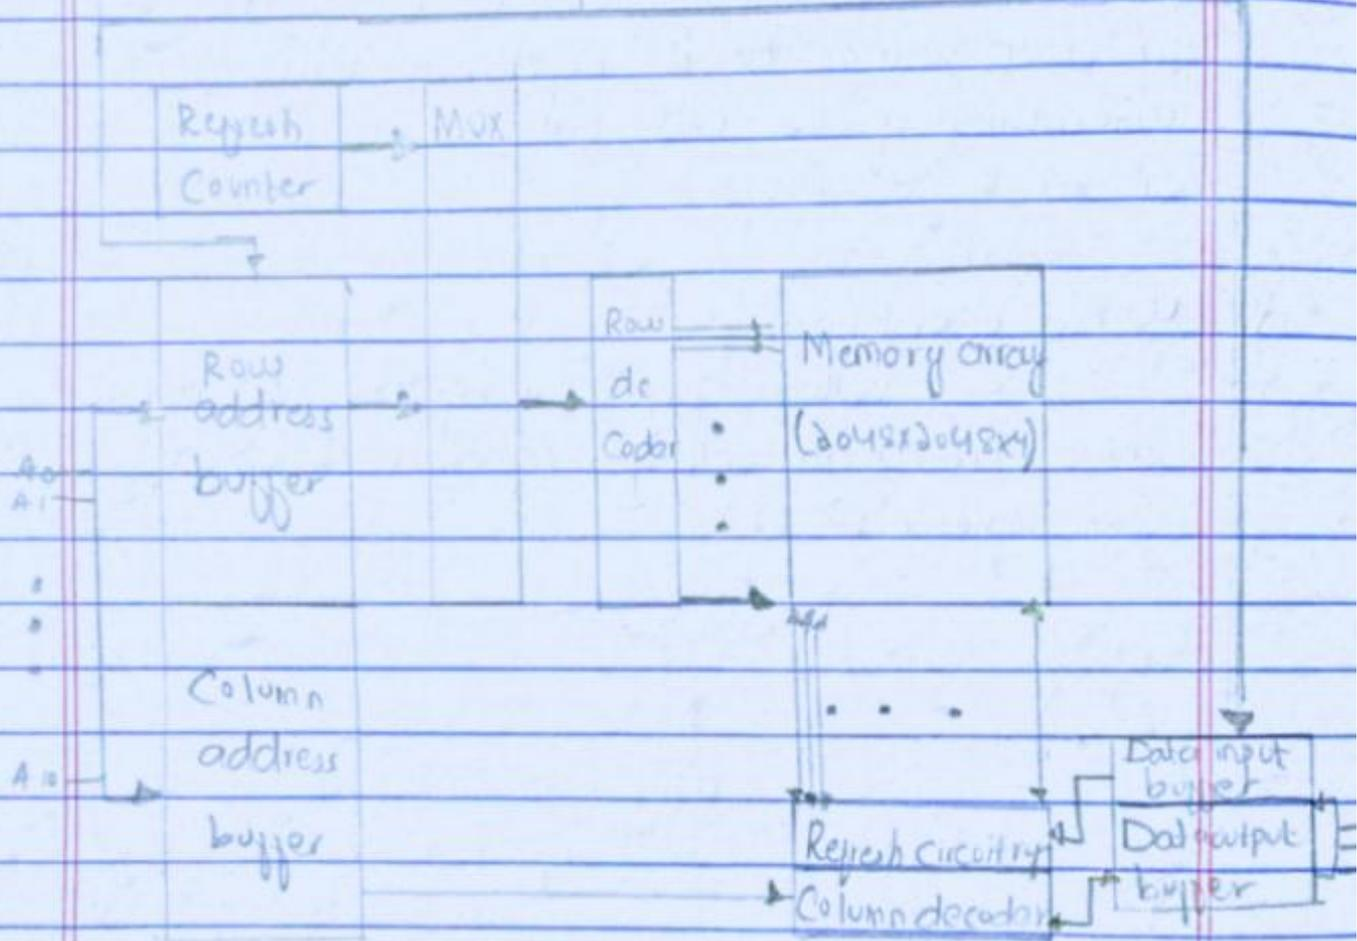 Refresh
Counter
MUX
Row
address
buffer
Row
de
Coder
Memory array
(2048x2048x4)
A0
A1
A10
Column
address
buffer
Refresh Circuitry
Column decoder
Data input
buffer
Data output
buffer